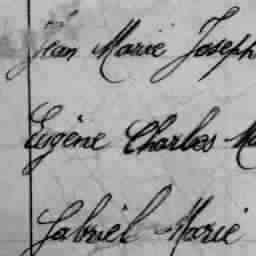 Jean Marie Joseph
Eugène Charles
Gabriel Marie